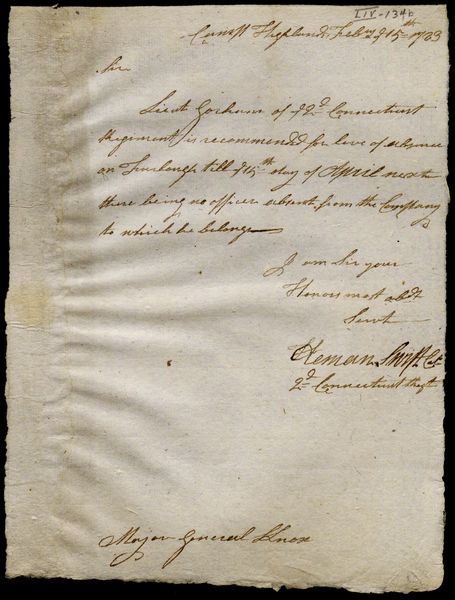 LIV-134b
Connt Highland Feby ye 15th 1783
Sir
Lieut Gorham of ye 2d Connecticut
Regiment is recommended for leve of absence
on Furlough till ye 15th day of April next
there being no officer absent from the Company
to which he belongs
I am Sir your
Honors most obdt
Servt
Heman Swift Col
2d Connecticut Regt
Major General Knox